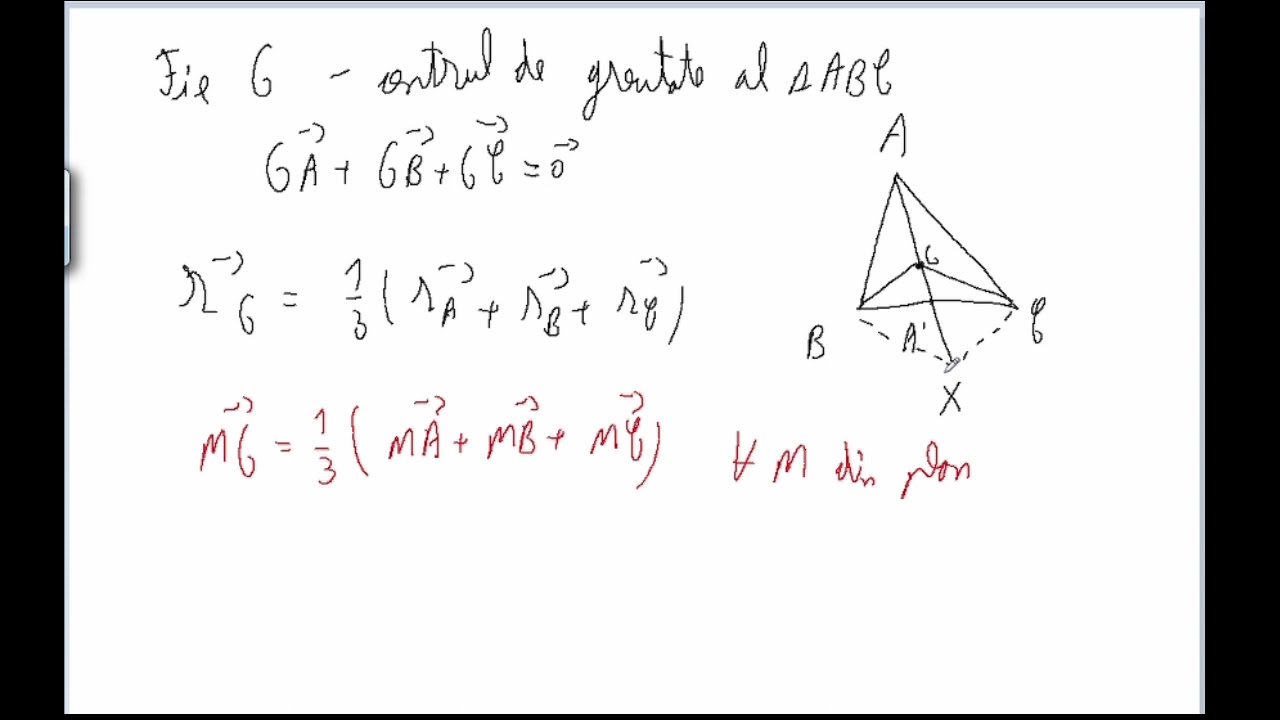 Fie G - centrul de greutate al ΔABC
GA⃗ + GB⃗ + GC⃗ = 0⃗
r⃗_G = 1/3 ( r⃗_A + r⃗_B + r⃗_C )
MG⃗ = 1/3 ( MA⃗ + MB⃗ + MC⃗ ) ∀ M din plan
A
G
B
A'
C
X